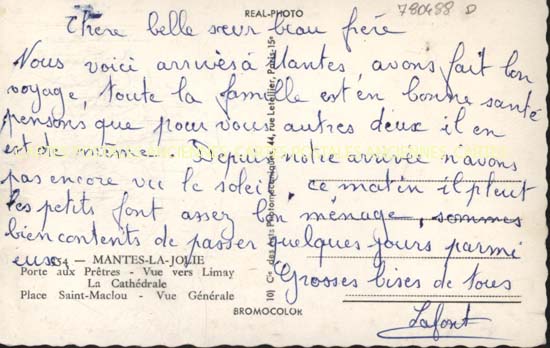 REAL-PHOTO
780488 D
Chère belle sœur beau frère
Nous voici arrivés à Mantes, avons fait bon
voyage, toute la famille est en bonne santé
pensons que pour vous autres deux il en
est de même. Depuis notre arrivée n'avons
pas encore vu le soleil, ce matin il pleut
les petits font assez bon ménage, sommes
bien contents de passer quelques jours parmi
eux.
Grosses bises de tous
Lafont
254 — MANTES-LA-JOLIE
Porte aux Prêtres - Vue vers Limay
La Cathédrale
Place Saint-Maclou - Vue Générale
BROMOCOLOR
Cie des Arts Photomécaniques, 44, rue Letellier, Paris-15e